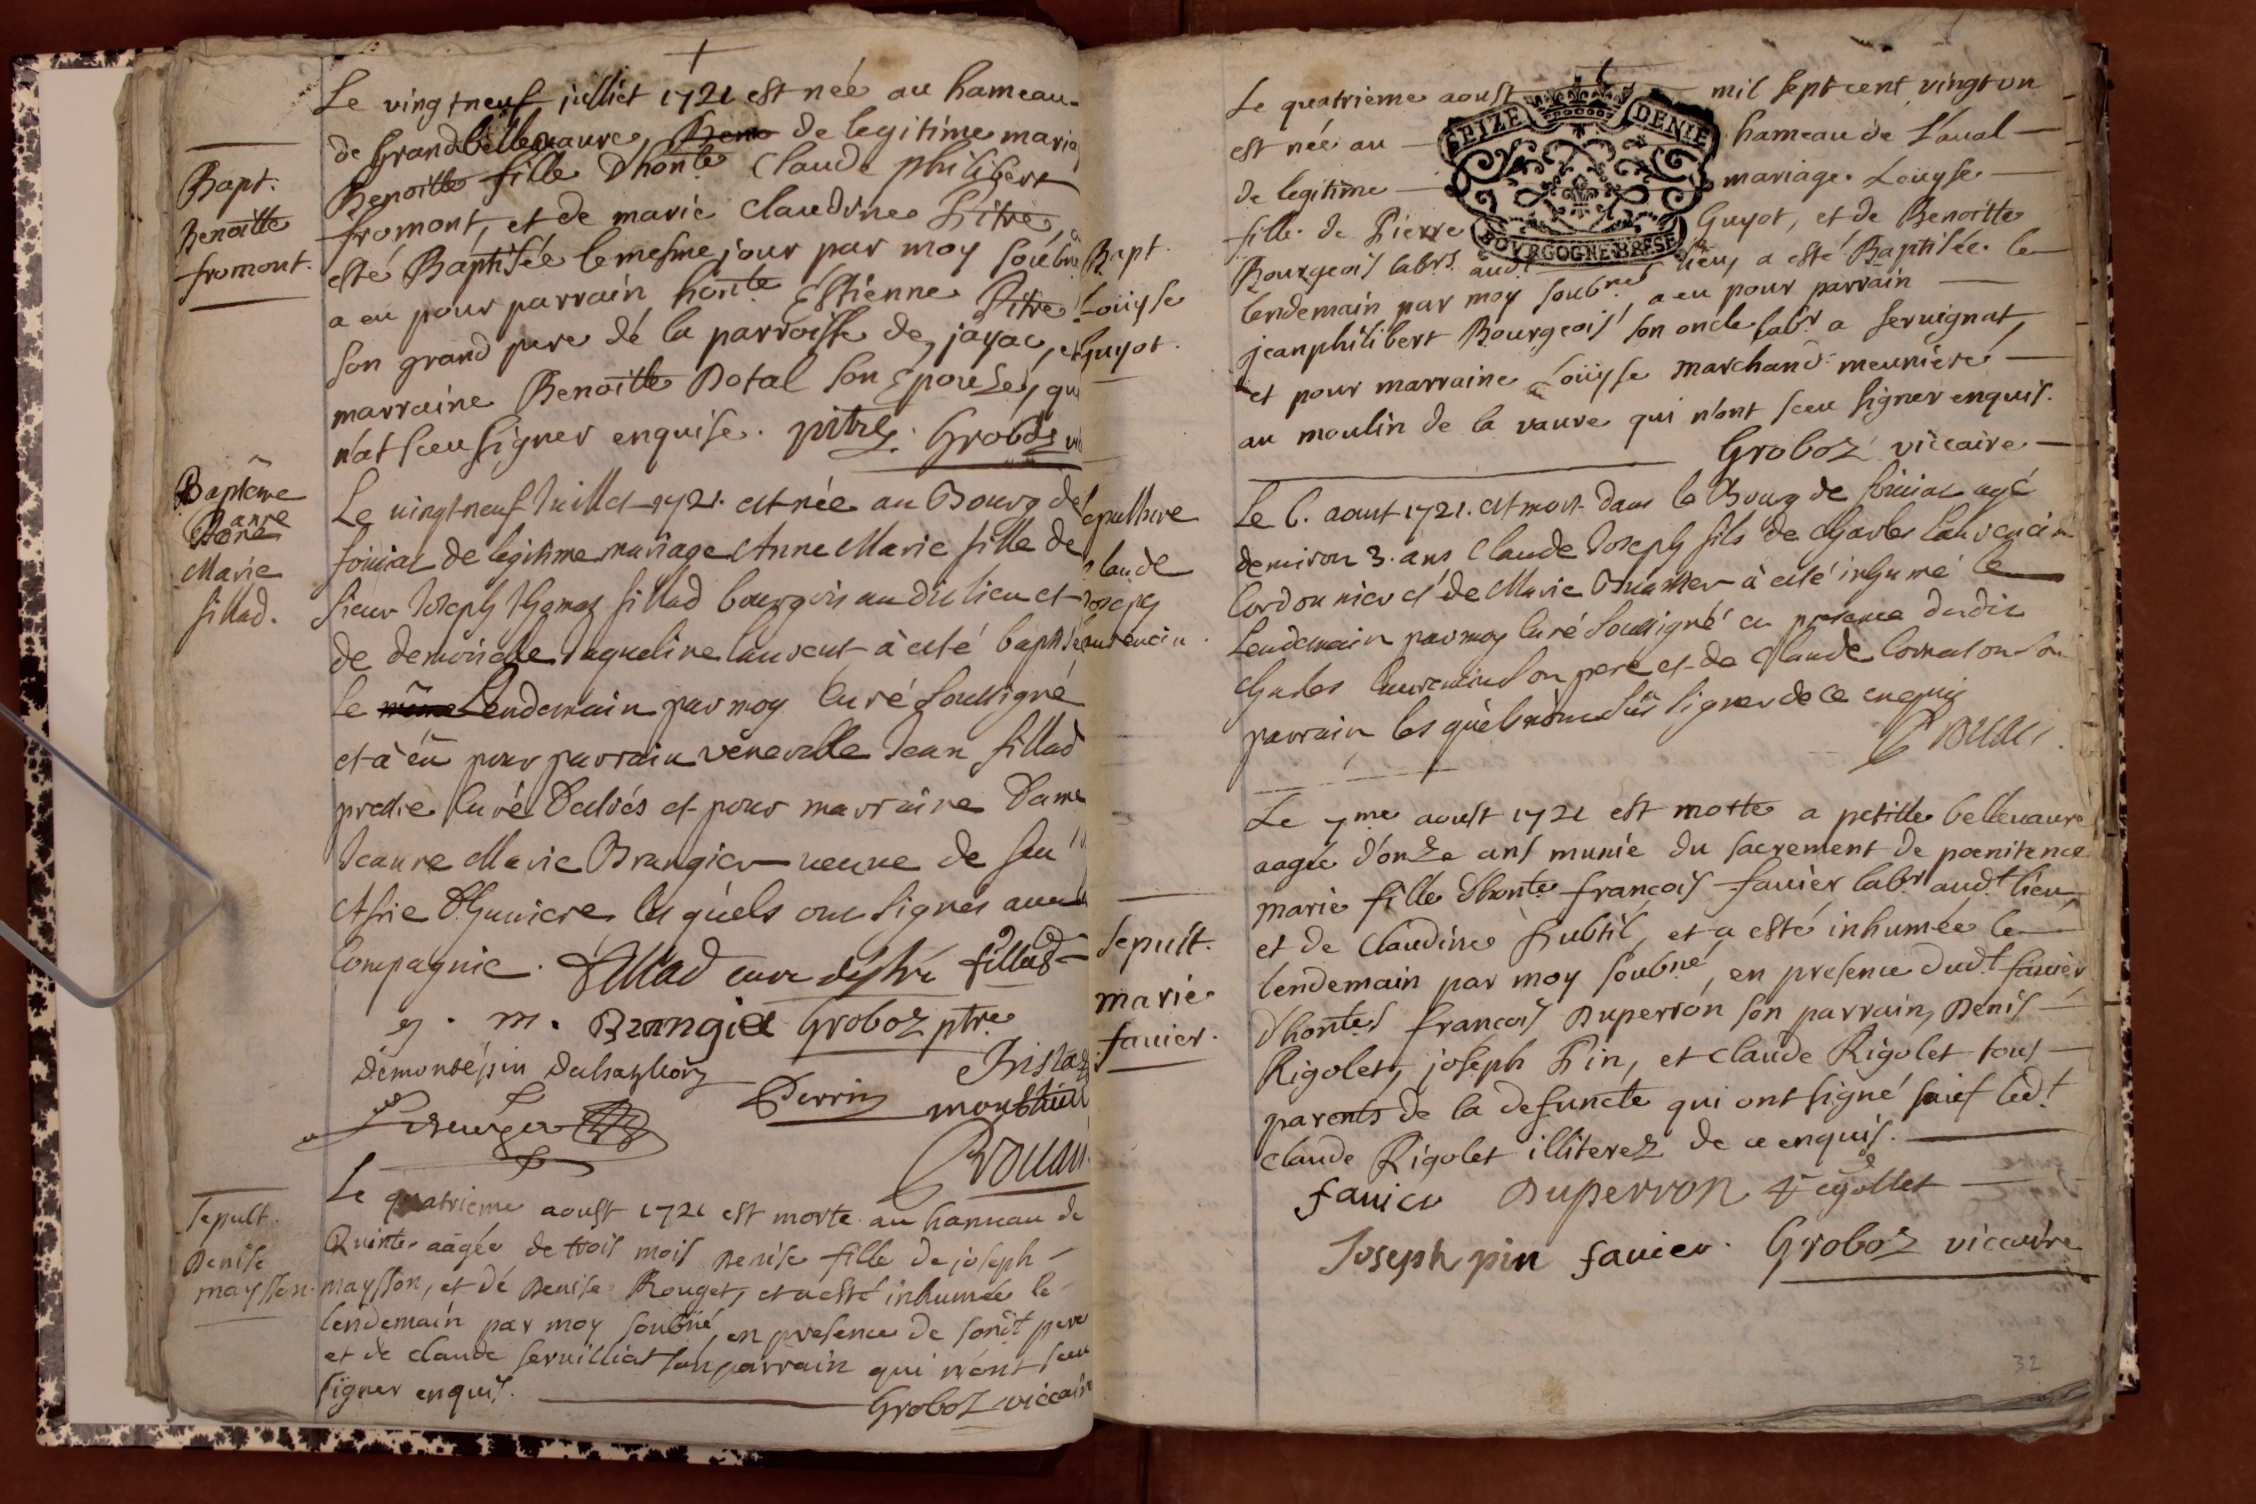 Le vingtneuf julliet 1721 est née au hameau
de Grandbellevaure, de legitime maria
Bapt.
Benoitte fille d'honte Claude philibert
Benoitte
fromont, et de marie Claudine Pitre, a
fromont.
esté Baptisée le mesme jour par moy soubne
a eu pour parrain honte Estienne Pitre
son grand pere de la parroisse de jayac, et
marraine Benoitte Dotal son Epouse, qui
n'at sceu signer enquise. pitre. Groboz vic
Baptême
anne
Marie
fillad.
Le vingtneuf Juillet 1721. est née au Bourg de
foiciat de legitime mariage Anne Marie fille de
sieur Joseph Thomas fillad bourgois au dit lieu et
de demoiselle Jaqueline laurent à esté baptisée
le Lendemain par moy Curé soussigné
et à eü pour parrain venerable Jean fillad
prestre Curé et pour marraine Dame
Jeanne Marie Brangier veuve de feu
lesquels ont signés avec
Compagnie. fillad curé fillad
m. Brangier Groboz ptre
demontépin
Perrin
Le quatrieme aoust 1721 est morte au hameau de
Sepult.
Quinte aagée de trois mois Denise fille de joseph
Denise
maysson.
maysson, et de Denise Rouget, et a esté inhumée le
lendemain par moy soubné, en presence de sondt pere
et de claude servilliat son parrain qui n'ont sceu
signer enquis.
Groboz viccaire
Le quatrieme aoust mil sept cent vingt un
SEIZE DENIE
est née au hameau de Laval
de legitime mariage Loüyse
fille de Pierre Guyot, et de Benoitte
BOVRGOGNE BRESE
Bapt.
Loüyse
Guyot.
Bourgeois labrs audt lieu, a esté Baptisée le
lendemain par moy soubné, a eu pour parrain
jeanphilibert Bourgeois son oncle labr a servignat,
et pour marraine Loüyse marchand meuniere
au moulin de la vaure qui n'ont sceu signer enquis.
Groboz viccaire
Sepulture
Claude
Joseph
laurencin.
Le 6. aout 1721. est mort dans le Bourg de foiciat agé
denviron 3. ans Claude Joseph fils de Charles laurencin
Cordonnier et de Marie à esté inhumé le
Lendemain par moy Curé soussigné en presence dudit
Charles laurencin son pere et de Claude son
parrain lesquels signer de ce enquis
Le 7me aoust 1721 est morte a petitte bellevaure
aagée d'onze ans munie du sacrement de poenitence
marie fille d'honte françois favier labr audt lieu,
Sepult.
marie
favier.
et de Claudine Subtil, et a esté inhumée le
lendemain par moy soubné, en presence dudt favier,
d'hontes françois Duperron son parrain, Denis
Rigolet, joseph Pin, et Claude Rigolet tous
parents de la defuncte qui ont signé sauf ledt
Claude Rigolet illiterez de ce enquis.
favier Duperron
Joseph pin favier. Groboz viccaire
32